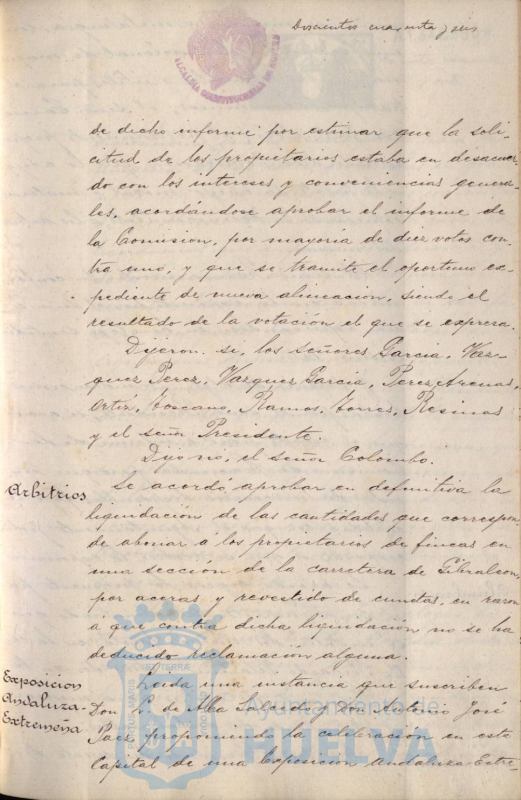 Doscientos cuarenta y seis
ALCALDIA CONSTITUCIONAL DE HUELVA
de dicho informe por estimar que la soli-
citud de los propietarios estaba en desacuer-
do con los intereses y conveniencias genera-
les, acordándose aprobar el informe de
la Comision, por mayoría de diez votos con-
tra uno, y que se tramite el oportuno ex-
pediente de nueva alineación, siendo el
resultado de la votación el que se expresa.
Dijeron si, los señores Garcia, Vaz-
quez Perez, Vazquez Garcia, Perez Arenas,
Ortiz, Toscano, Ramos, Torres, Resinas
y el señor Presidente.
Dijo nó, el señor Colombo.
Arbitrios
Se acordó aprobar en definitiva la
liquidación de las cantidades que correspon-
de abonar á los propietarios de fincas en
una sección de la carretera de Gibraleon,
por aceras y revestido de cunetas, en razon
á que contra dicha liquidación no se ha
deducido reclamación alguna.
Exposicion
Andaluza-
Extremeña
Leida una instancia que suscriben
Don P. de Alba Salcedo y Don Antonio José
Paez, proponiendo la celebración en esta
Capital de una Exposicion Andaluza-Extre-
PORTUS MARIS ET TERRAE CUSTODIA
Ayuntamiento de
HUELVA